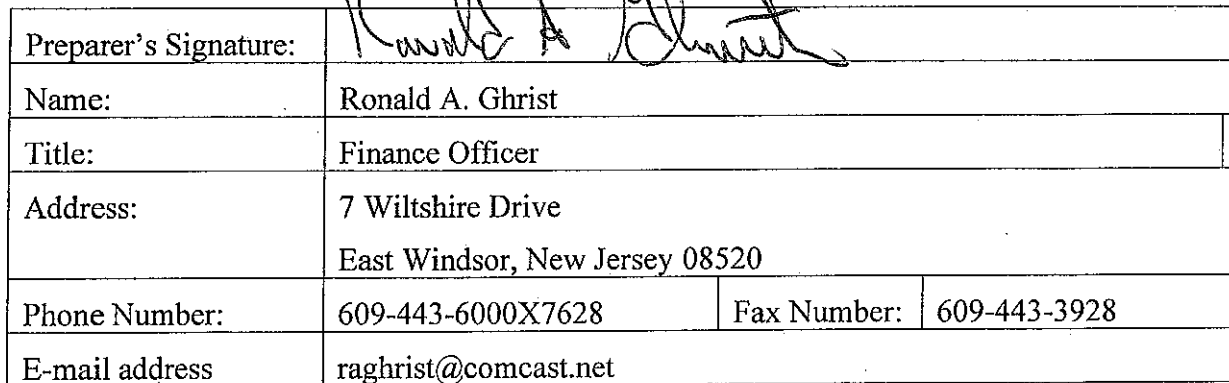 Preparer's Signature: Ronald A Ghrist
Name: Ronald A. Ghrist
Title: Finance Officer
Address: 7 Wiltshire Drive
East Windsor, New Jersey 08520
Phone Number: 609-443-6000X7628 Fax Number: 609-443-3928
E-mail address raghrist@comcast.net